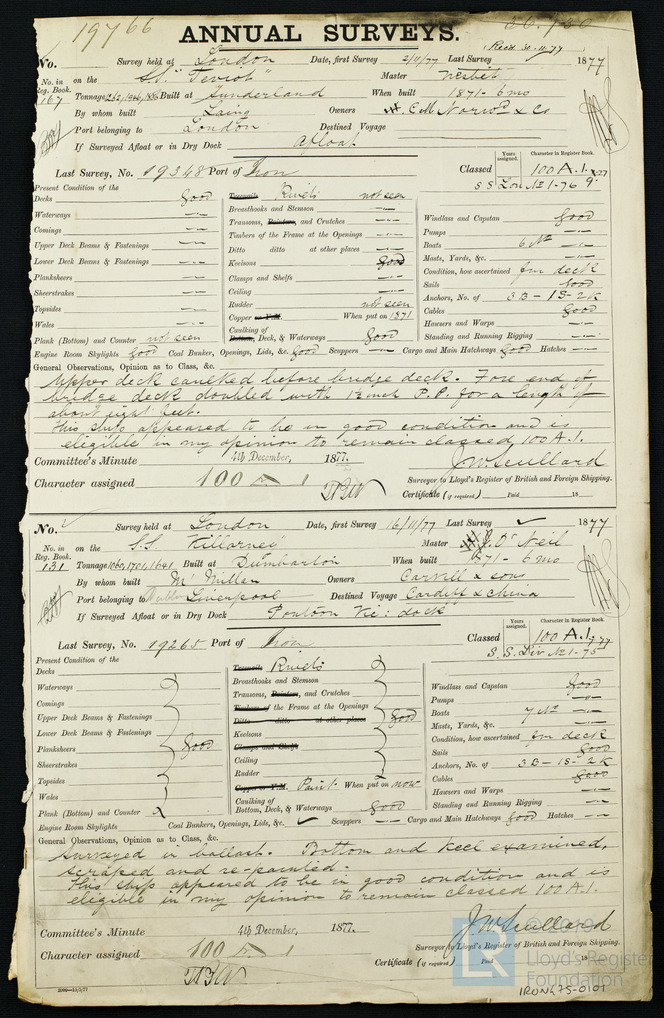 19766
ANNUAL SURVEYS.
(Rec'd 30-11-77)
No. Survey held at London Date, first Survey 2/11/77 Last Survey 1877
No. in Reg. Book. 167 on the S.S. "Teviot" Master Nesbet
Tonnage Built at Sunderland When built 1871-6 mo
By whom built Laing Owners C. M. Norwd & Co
Port belonging to London Destined Voyage
If Surveyed Afloat or in Dry Dock Afloat
Last Survey, No. 19348 Port of Iron
Classed
Years assigned.
Character in Register Book.
100 A.1.
S S Lon No 1-76 9
Present Condition of the
Decks good
Waterways —"—
Comings —"—
Upper Deck Beams & Fastenings —"—
Lower Deck Beams & Fastenings —"—
Planksheers —"—
Sheerstrakes —"—
Topsides —"—
Wales —"—
Plank (Bottom) and Counter not seen
Treenails Rivets not seen
Breasthooks and Stemson —"—
Transoms, Pointers, and Crutches —"—
Timbers of the Frame at the Openings —"—
Ditto ditto at other places —"—
Keelsons good
Clamps and Shelfs —"—
Ceiling —"—
Rudder not seen
Copper or Y.M. When put on 1871
Caulking of
Bottom, Deck, & Waterways good
Windlass and Capstan good
Pumps —"—
Boats 6 No —"—
Masts, Yards, &c. —"—
Condition, how ascertained fm deck
Sails good
Anchors, No. of 3B-1S-2K
Cables good
Hawsers and Warps —"—
Standing and Running Rigging —"—
Engine Room Skylights good Coal Bunker, Openings, Lids, &c. good Scuppers —"— Cargo and Main Hatchways good Hatches —"—
General Observations, Opinion as to Class, &c.
Upper deck caulked before bridge deck. Fore end of
bridge deck doubled with 1½ inch P.P. for a length of
about eight feet.
This ship appeared to be in good condition and is
eligible in my opinion to remain classed 100 A.1.
Committee's Minute 4th December, 1877.
Character assigned 100 A 1
J. W. Scullard
Surveyor to Lloyd's Register of British and Foreign Shipping.
Certificate (if required) Paid 18
No. Survey held at London Date, first Survey 16/11/77 Last Survey 1877
No. in Reg. Book. 131 on the S.S. "Killarney" Master J. O'Neil
Tonnage 1060, 1701, 1641 Built at Dumbarton When built 1871-6 mo
By whom built McMillan Owners Carvill & Sons
Port belonging to Liverpool Destined Voyage Cardiff & China
If Surveyed Afloat or in Dry Dock Pontoon Vic: dock
Last Survey, No. 19265 Port of Iron
Classed
Years assigned.
Character in Register Book.
100 A.1.
S.S. Liv No 1-75
Present Condition of the
Decks
Waterways
Comings
Upper Deck Beams & Fastenings
Lower Deck Beams & Fastenings
Planksheers good
Sheerstrakes
Topsides
Wales
Plank (Bottom) and Counter
Treenails Rivets
Breasthooks and Stemson
Transoms, Pointers, and Crutches
Timbers of the Frame at the Openings
Ditto ditto at other places good
Keelsons
Clamps and Shelfs
Ceiling
Rudder
Copper or Y.M. Paint When put on now
Caulking of
Bottom, Deck, & Waterways good
Windlass and Capstan good
Pumps —"—
Boats 7 No —"—
Masts, Yards, &c. —"—
Condition, how ascertained fm deck
Sails good
Anchors, No. of 3B-1S-2K
Cables good
Hawsers and Warps —"—
Standing and Running Rigging —"—
Engine Room Skylights Coal Bunkers, Openings, Lids, &c. Scuppers —"— Cargo and Main Hatchways good Hatches —"—
General Observations, Opinion as to Class, &c.
Surveyed in ballast. Bottom and keel examined,
scraped and re-painted.
This ship appeared to be in good condition and is
eligible in my opinion to remain classed 100 A.1.
Committee's Minute 4th December, 1877.
Character assigned 100 A 1
J. W. Scullard
Surveyor to Lloyd's Register of British and Foreign Shipping.
Certificate (if required) Paid 18
© 2019
Lloyd's Register
Foundation
IRON675-0101